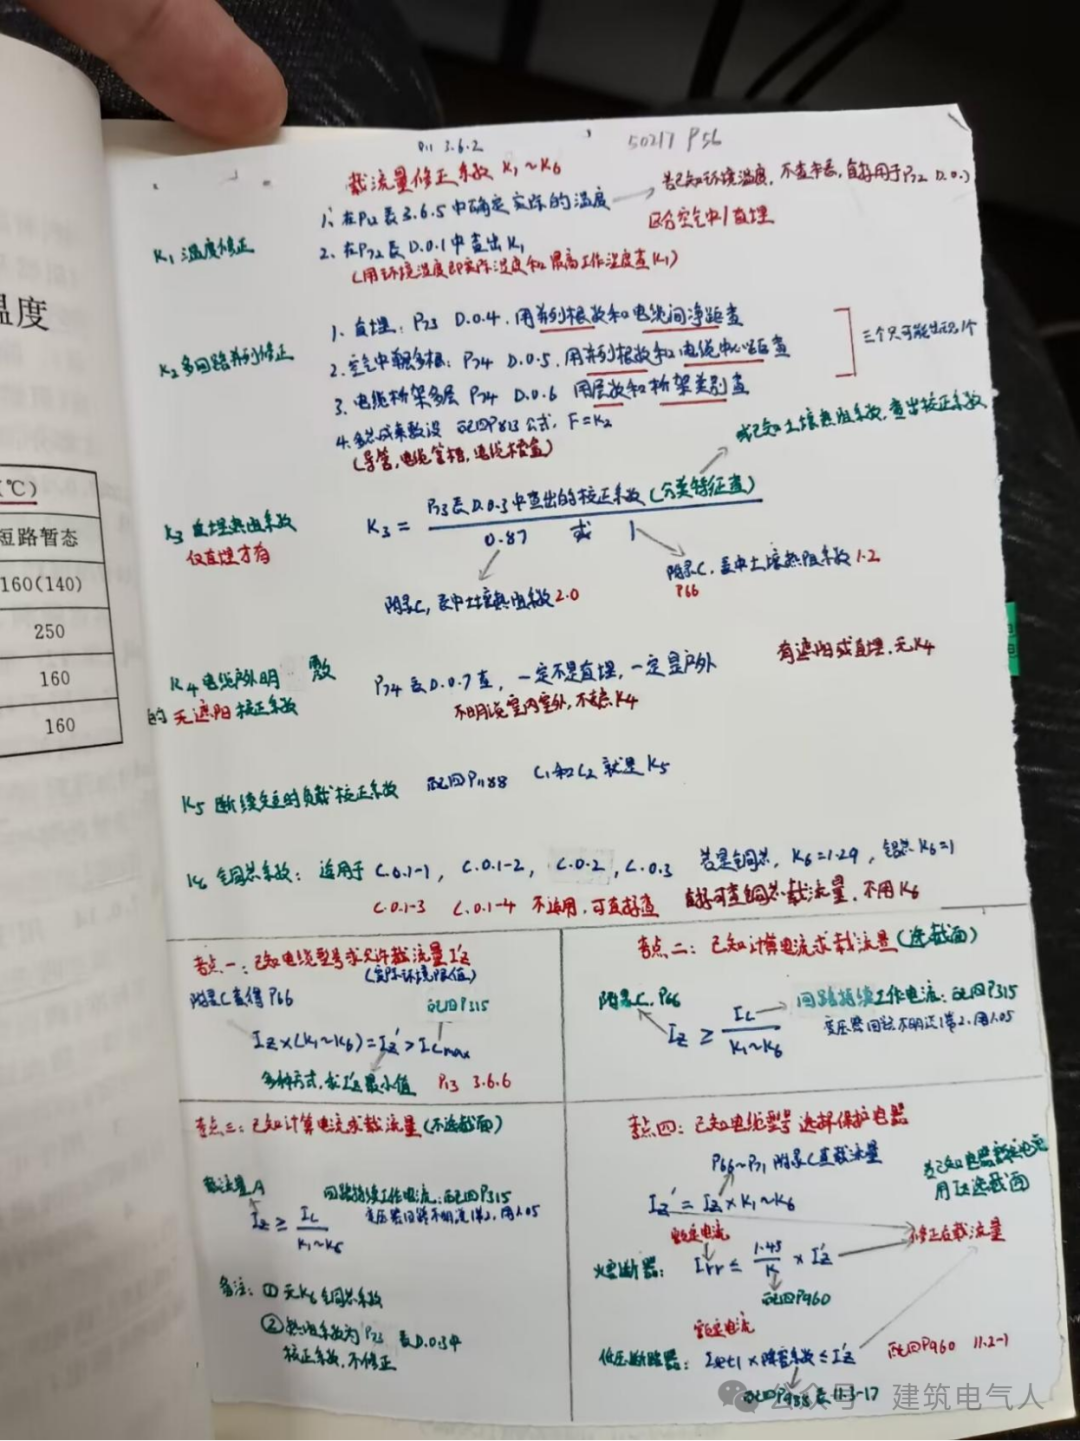 P11 3.6.2
50217 P56
载流量修正系数 K₁~K₆
若已知环境温度，不查本表，直接用于P72 D.0.1
区分空气中/直埋
K₁ 温度修正
1、在P12表3.6.5中确定实际的温度
2、在P72表D.0.1中查出K₁
(用环境温度即实际温度和最高工作温度查K₁)
K₂多回路并列修正
1、直埋：P73 D.0.4，用并列根数和电缆间净距查
2、空气中单层多根：P74 D.0.5，用并列根数和电缆中心距查
3、电缆桥架多层 P74 D.0.6 用层数和桥架类别查
三个只可能出现1个
4、多芯成束敷设 配四P813公式，F=K₂
(导管，电缆管槽，电缆槽盒)
或已知土壤热阻系数，查出校正系数
K₃ 直埋热阻系数
仅直埋才有
K₃ = P73表D.0.3中查出的校正系数(分类特征查)
0.87 或 1
附录C，表中土壤热阻系数2.0
附录C，表中土壤热阻系数1.2
P66
K₄电缆户外明敷
的无遮阳校正系数
P74表D.0.7查，一定不是直埋，一定是户外
不明说室内室外，不考虑K₄
有遮阳或直埋，无K₄
K₅ 断续负载的负载校正系数 配四P1188 C₁和C₂就是K₅
K₆ 铜芯系数：适用于 C.0.1-1， C.0.1-2， C.0.2，C.0.3 若是铜芯，K₆=1.29，铝芯K₆=1
C.0.1-3 C.0.1-4 不适用，可直接查 直接可查铜芯载流量，不用K₆
考点一：已知电缆型号求允许载流量I'z
(实际环境限值)
附录C查得P66
配四P315
Iz×(K₁~K₆)=Iz'>ICmax
多种方式，求Iz'最小值 P13 3.6.6
考点二：已知计算电流求载流量(选截面)
附录C. P66
Iz ≥ Ic / K₁~K₆
回路持续工作电流：配四P315
变压器回路不明说1或2，用1.05
考点三：已知计算电流求载流量(不选截面)
载流量A
回路持续工作电流：配四P315
变压器回路不明说1或2，用1.05
Iz ≥ Ic / K₁~K₆
备注：①无K₆铜芯系数
②热阻系数为P73 表D.0.3中
校正系数，不修正
考点四：已知电缆型号选择保护电器
P66~P71 附录C查载流量
Iz'=Iz×K₁~K₆
若已知电器额定电流
用Iz选截面
修正后载流量
额定电流
熔断器： Irr ≤ 1.45/K × Iz'
配四P960
额定电流
低压断路器： Iset1 × 降容系数 ≤ Iz'
配四P960 11.2-1
配四P988 表11.3-17
公众号 建筑电气人
温度
(℃)
短路暂态
160(140)
250
160
160